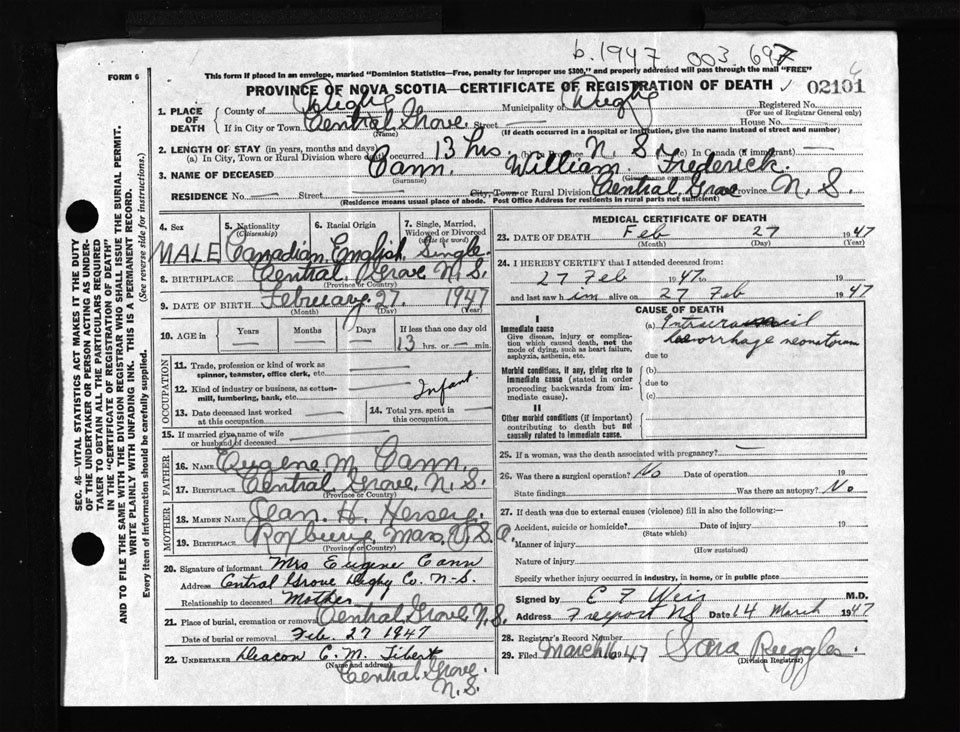 b. 1947 003.697
FORM 6
This form if placed in an envelope, marked "Dominion Statistics—Free, penalty for improper use $300," and properly addressed will pass through the mail "FREE"
PROVINCE OF NOVA SCOTIA—CERTIFICATE OF REGISTRATION OF DEATH 02101
1. PLACE OF DEATH County of Digby Municipality of Digby Registered No.
(For use of Registrar General only)
If in City or Town Central Grove Street House No.
(Name) (If death occurred in a hospital or institution, give the name instead of street and number)
2. LENGTH OF STAY (in years, months and days)
(a) In City, Town or Rural Division where death occurred 13 hrs. N. S. In Canada (if immigrant) —
3. NAME OF DECEASED Cann. William Frederick.
(Surname)
RESIDENCE No. — Street — City, Town or Rural Division Central Grove Province N. S.
(Residence means usual place of abode. Post Office Address for residents in rural parts not sufficient)
4. Sex 5. Nationality (Citizenship) 6. Racial Origin 7. Single, Married, Widowed or Divorced (Write the word)
MALE Canadian English Single
8. BIRTHPLACE Central Grove N. S.
(Province or Country)
9. DATE OF BIRTH February 27. 1947
(Month) (Day) (Year)
10. AGE in Years Months Days If less than one day old
13 hrs. or — min.
OCCUPATION
11. Trade, profession or kind of work as spinner, teamster, office clerk, etc.
12. Kind of industry or business, as cotton-mill, lumbering, bank, etc. Infant
13. Date deceased last worked at this occupation 14. Total yrs. spent in this occupation
15. If married give name of wife or husband of deceased
FATHER
16. NAME Eugene M. Cann.
17. BIRTHPLACE Central Grove, N. S.
(Province or Country)
MOTHER
18. MAIDEN NAME Jean H. Hersey
19. BIRTHPLACE Roxbury Mass, U. S. A.
(Province or Country)
20. Signature of informant Mrs Eugene Cann
Address Central Grove Digby Co. N-S.
Relationship to deceased Mother
21. Place of burial, cremation or removal Central Grove N. S.
Date of burial or removal Feb. 27 1947
22. UNDERTAKER Deacon C. M. Tibert
(Name and address)
Central Grove.
N. S.
MEDICAL CERTIFICATE OF DEATH
23. DATE OF DEATH Feb 27 1947
(Month) (Day) (Year)
24. I HEREBY CERTIFY that I attended deceased from:
27 Feb 1947 to
and last saw him alive on 27 Feb 1947
CAUSE OF DEATH
I
Immediate cause (a) Intracranial
Give disease, injury or complication which caused death, not the mode of dying, such as heart failure, asphyxia, asthenia, etc. haemorrhage neonatorum
due to
Morbid conditions, if any, giving rise to immediate cause (stated in order proceeding backwards from immediate cause). (b)
due to
(c)
II
Other morbid conditions (if important) contributing to death but not causally related to immediate cause.
25. If a woman, was the death associated with pregnancy? —
26. Was there a surgical operation? No Date of operation 19
State findings Was there an autopsy? No
27. If death was due to external causes (violence) fill in also the following:—
Accident, suicide or homicide? Date of injury 19
(State which)
Manner of injury
(How sustained)
Nature of injury
Specify whether injury occurred in industry, in home, or in public place
Signed by E F Weir M.D.
Address Freeport NS Date 14 March 1947
28. Registrar's Record Number
29. Filed March 16 1947 Sara Ruggles.
(Division Registrar)
SEC. 46—VITAL STATISTICS ACT MAKES IT THE DUTY OF THE UNDERTAKER OR PERSON ACTING AS UNDERTAKER TO OBTAIN ALL THE PARTICULARS REQUIRED IN THE "CERTIFICATE OF REGISTRATION OF DEATH"
AND TO FILE THE SAME WITH THE DIVISION REGISTRAR WHO SHALL ISSUE THE BURIAL PERMIT.
WRITE PLAINLY WITH UNFADING INK. THIS IS A PERMANENT RECORD.
Every item of information should be carefully supplied. (See reverse side for instructions.)